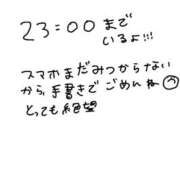 23:00 まで
いるよ!!!
スマホまだみつからない
から、手書きで ごめんね
とっても絶望